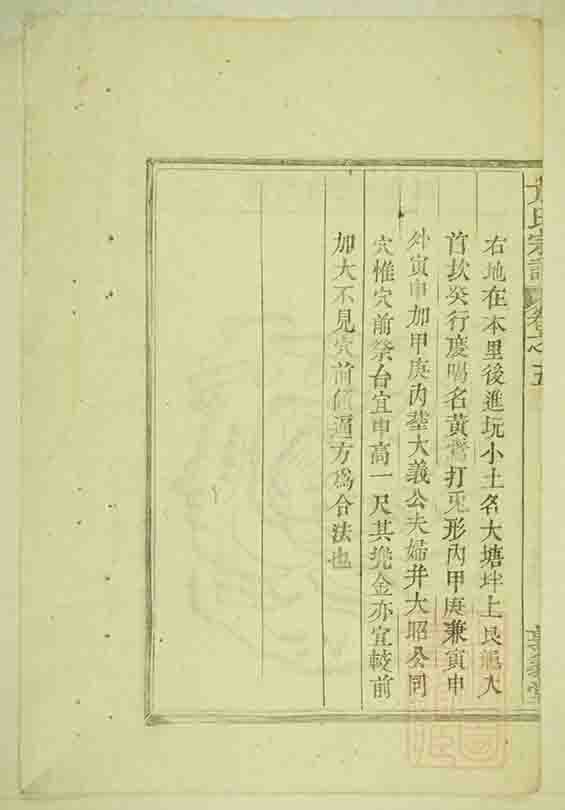 氏宗譜 卷之五
右地在本里後進坑小土名大塘坪上艮龍大
首坎癸行度喝名黃鶯打兎形內甲庚兼寅申
外寅申加甲庚內塟大義公夫婦幷大昭公同
穴惟穴前祭台宜申高一尺其兠金亦宜較前
加大不見穴前逼方爲合法也
堂